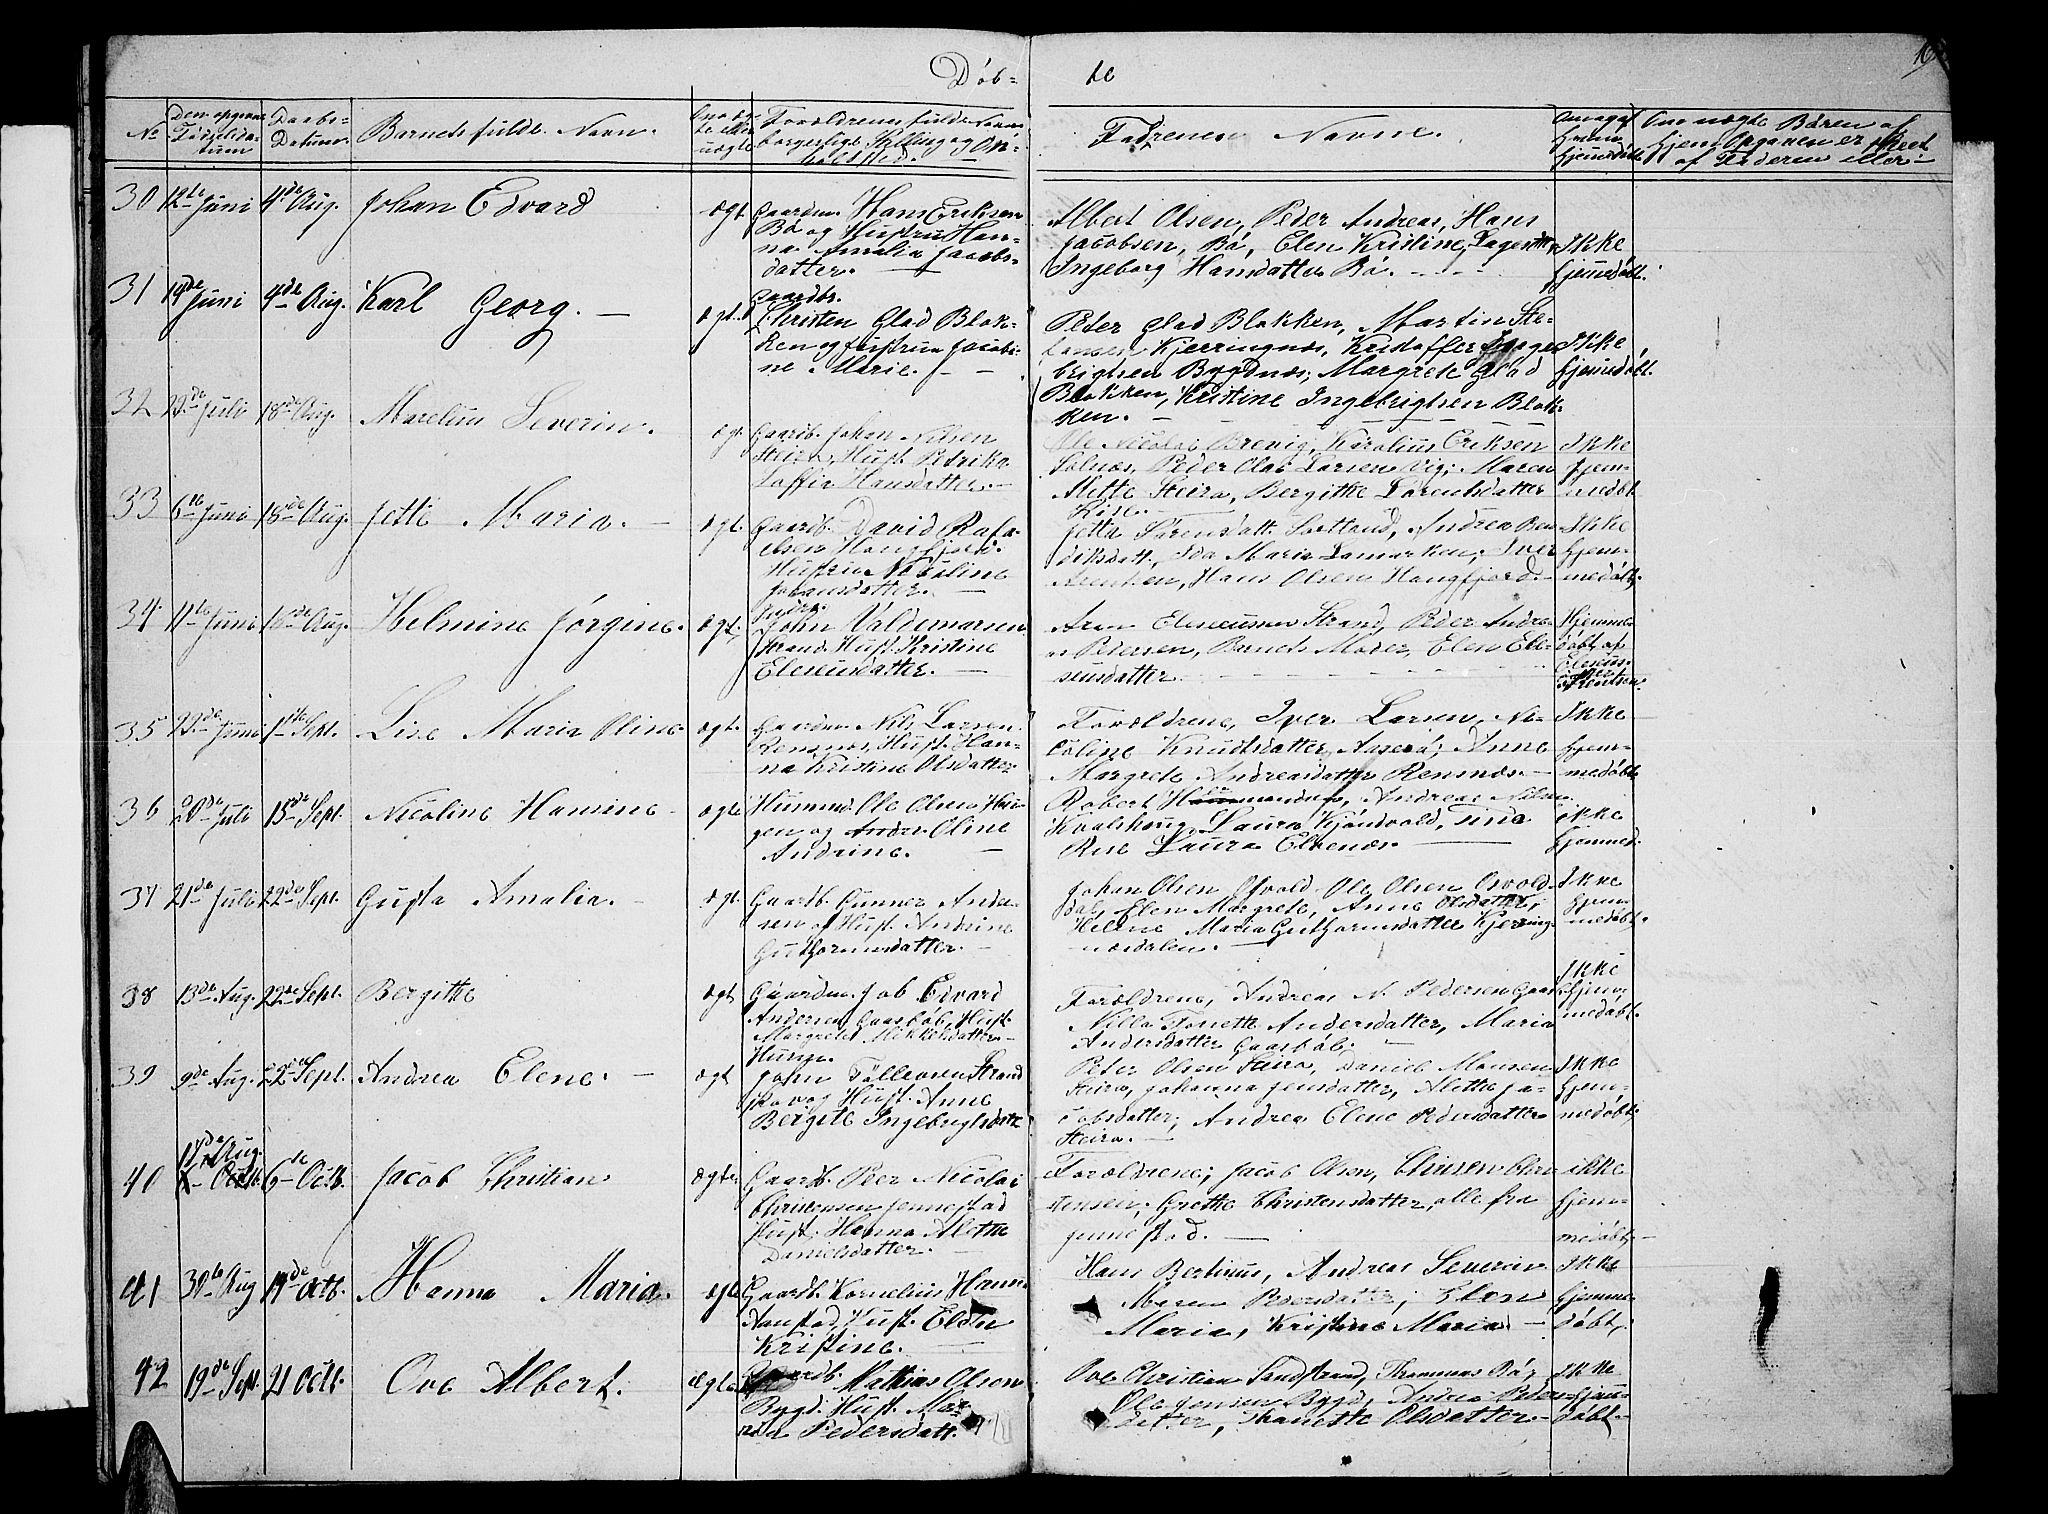 Døb= te
No
Den opgivne Fødselsda- tum
Daabs- Datum.
Barnets fulde Navn.
Om ægte eller uægte
Forældrenes fulde Navne borgerlige Stilling og Op- holdssted.
Faddrenes Navne.
Om uægte Børn af
af Faderen eller:
30 12te Juni 4de Aug. Johan Edvard ægt. Gaardm. Hans Eriksen
Bø og Hustru Han-
na Amalia Jacobs-
datter.
Albert Olsen, Peder Andreas, Hans
Jacobsen, Bø, Elen Kristine,
Ingeborg Hansdatter Bø.
Ikke
hjemedøbt.
31 14de Juni 4de Aug. Karl Georg. ægt. Gaardbr.
Christen Glad Blok-
ken og Hustru Jacobi-
ne Marie.
Peder Glad Blokken, Martin Ste-
fensen Kjerringnæs, Kristoffer Inge-
brigtsen Bygdnæs, Margrete Glad
Blokken, Kristine Ingebrigtsen Blok-
ken.
Ikke
hjemedøbt.
32 23de Juli 18de Aug. Marelius Severin. ægt. Gaardb. Johan Nilsen
Steiro, Hust. Petrika
Soffia Hansdatter.
Ole Nicolai Brevig, Karolius Eriksen
Selnæs, Peder Olai Larsen Vig, Maren
Mette Steiro, Bergitthe Lorentsdatter
Rise.
Ikke
hjem-
medøbt
33 6te Juni 18de Aug. Jette Maria. ægt. Gaardb. David Rafa-
elsen Hongfjord.
Hustru Nicoline
Johansdatter.
Jetta Sørensdatt. Sortland, Andrea Ben-
diksdatt., Ida Maria Lamarken, Iver
Arentsen, Hans Olsen Hongfjord.
Ikke
hjem-
medøbt.
34. 11te Juni 18de Aug. Helmine Jørgine. ægt. Indr.
John Valdemarsen
Strand. Hust. Kristine
Eleseusdatter.
Aron Eleseussen Strand, Peder Andre-
as Pedersen, Barnets Moder, Elen Ele-
seusdatter.
Hjemme-
døbt af
Eleseus
Arentsen
35 23de Juni 1ste Sept. Lise Maria Oline ægt. Gaardm. Nils Larsen
Rensnæs, Hust. Han-
na Kristine Olsdatter
Forældrene, Iver Larsen, Ni-
coline Knudsdatter, Anne
Margrete Andreasdatter Rensnæs.
Ikke
hjem-
medøbt
36 20de Juli 15de Sept. Nicoline Hansine ægte Husmand Ole Olsen
og Oline
Andrine.
Robert, Andreas Nilsen
Kvalshaug, Laura Kjøndvold, Trine
Rise Laura Elvenæs.
ikke
hjemmed.
37 21de Juli 22de Sept. Gusta Amalia. ægt. Gaardb. Gunner Ander-
sen og Hust. Andrine
Guttormsdatter.
Johan Olsen Osvold, Ole Olsen Osvold-
dal, Elen Margrete, Anne Olsdatter,
Helene Maria Guttormsdatter Kjerring-
næsdalen.
Ikke
hjem-
medøbt.
38 13de Aug. 22de Sept. Bergitte ægt. Gaardm. Job Edvard
Andersen Gaasbøl, Hust.
Margrete Mikkelsdatter
Forældrene, Andreas N. Pedersen Gaas-
Nilla Tonette Andersdatter, Maria
Andersdatter Gaasbøl.
Ikke
hjem-
medøbt.
39 9de Aug. 22de Sept. Andrea Elene. ægt Husm.
John Tollevsen Strand
skov og Hust. Anne
Bergete Ingebrigtsdatt
Peter Olsen Steiro, Daniel Monsen
Steiro, Johanna Jensdatter, Alethe Ja-
cobsdatter, Andrea Elene Pedersdatter
Steiro.
Ikke
hjem-
medøbt.
40 17de Aug. 6te Octb. Jacob Christian ægte Gaardb. Peer Nicolai
Christensen Jennestad
Hust. Hanna Alethe
Danielsdatter.
Forældrene, Jacob Olson, Chri-
stensen, Grethe Christensdatter, alle fra
Jennestad.
ikke
hjem-
medøbt.
41 30te Aug 19de Octb. Hanna Maria ægte Gaardb. Kornelius Hans-
Aanstad, Hust. Elen
Kristine.
Hans Bertinus, Andreas Severin
Maren Pedersdatter, Elen
Maria, Kristine Maria.
Ikke
hjemme-
døbt.
42 19de Sept. 21 Octb. Ove Albert. ægte Gaardb. Mathias Olson
Bygd. Hust. Mar-
Pedersdatt.
Ove Christian Sandstrand, Thommas Bø,
Ole Jensen Bygd, Andrea Peders-
datter, Hanette Olsdatter.
Ikke
hjem-
døbt.